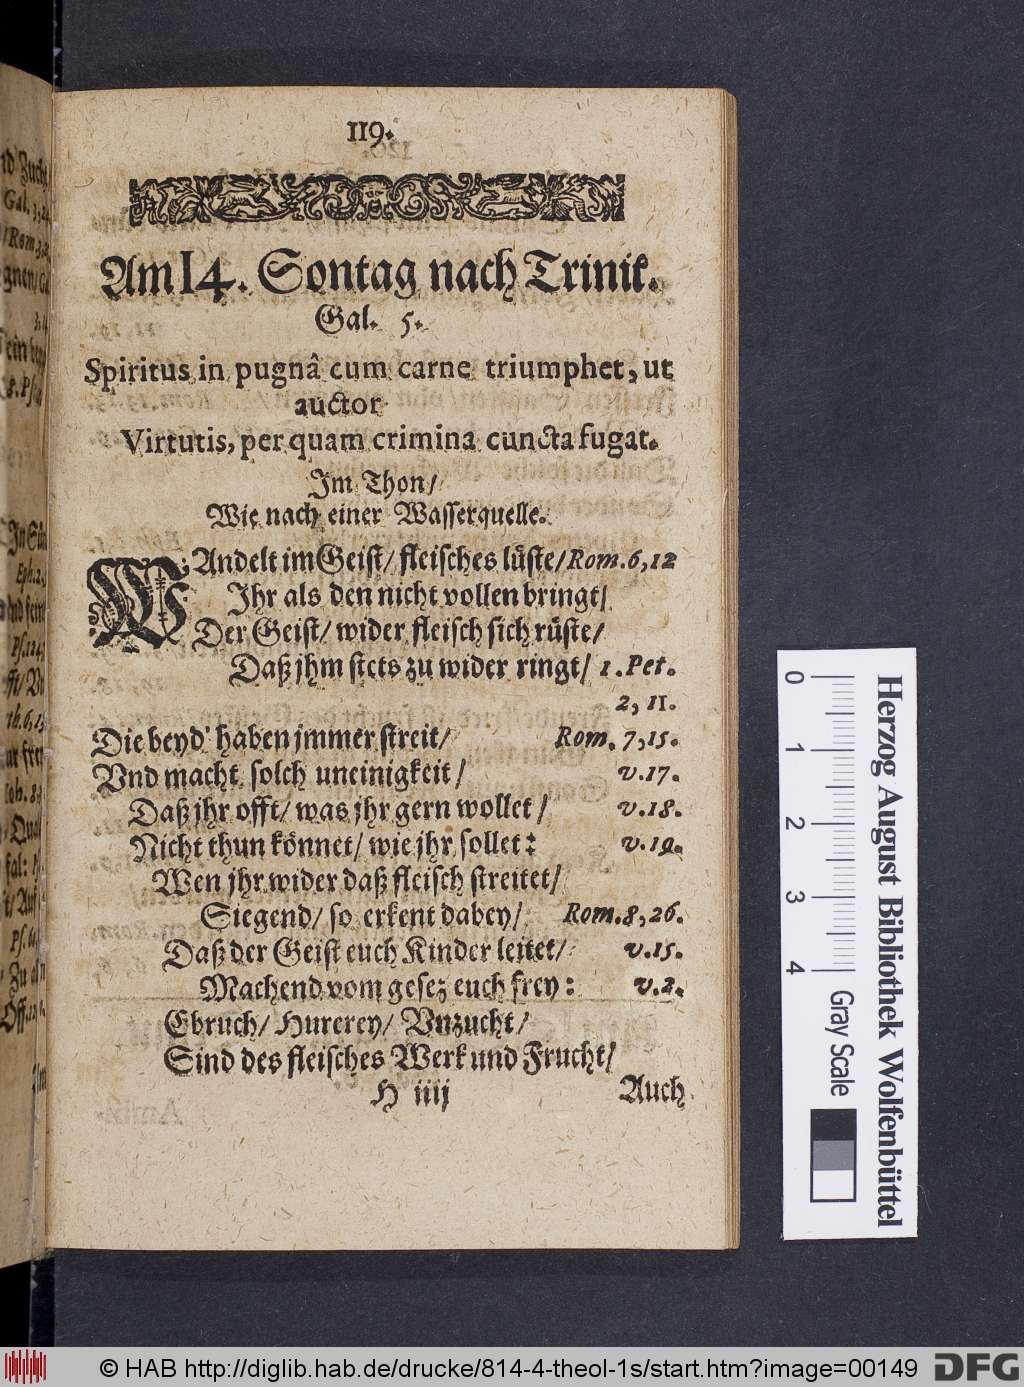 119.
Am 14. Sontag nach Trinit.
Gal. 5.
Spiritus in pugnâ cum carne triumphet, ut
auctor
Virtutis, per quam crimina cuncta fugat.
Im Thon/
Wie nach einer Wasserquelle.
WAndelt im Geist/ fleisches lüste/ Rom. 6, 12
Ihr als den nicht vollen bringt/
Der Geist/ wider fleisch sich rüste/
Daß jhm stets zu wider ringt/ 1. Pet.
2, 11.
Die beyd' haben jmmer streit/ Rom. 7, 15.
Vnd macht solch uneinigkeit/ v. 17.
Daß jhr offt/ was jhr gern wollet/ v. 18.
Nicht thun könnet/ wie jhr sollet: v. 19.
Wen jhr wider daß fleisch streitet/
Siegend/ so erkent dabey/ Rom. 8, 26.
Daß der Geist euch Kinder leitet/ v. 15.
Machend vom gesez euch frey: v. 2.
Ebruch/ Hurerey/ Vnzucht/
Sind des fleisches Werk und Frucht/
H iiij Auch
Herzog August Bibliothek Wolfenbüttel
0 1 2 3 4 Gray Scale
© HAB http://diglib.hab.de/drucke/814-4-theol-1s/start.htm?image=00149 DFG